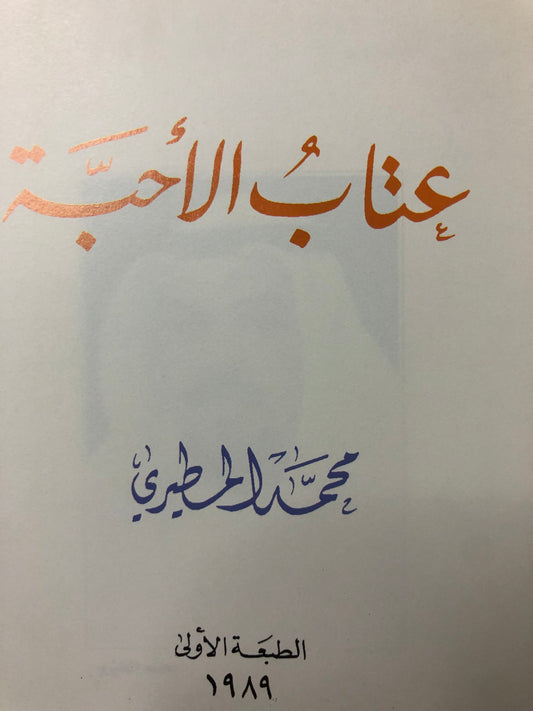 عتابُ الأحبّة
محمّد المطيري
الطبعَة الأولى
١٩٨٩